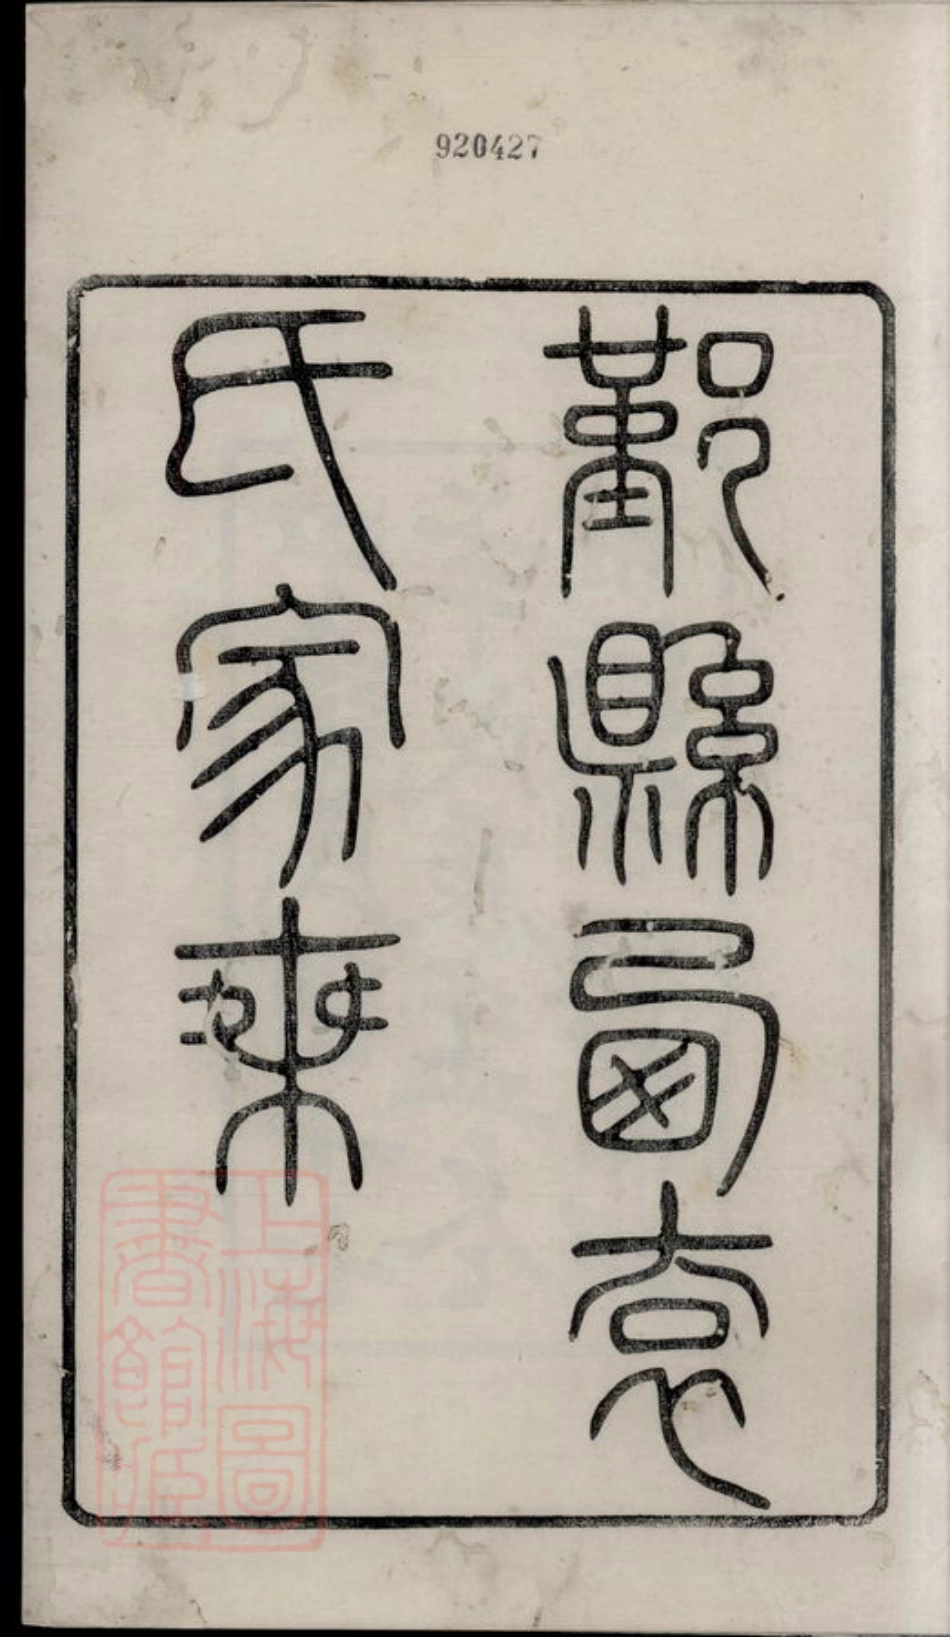 920427
鄞縣西袁
氏家乘
上海圖
書館藏